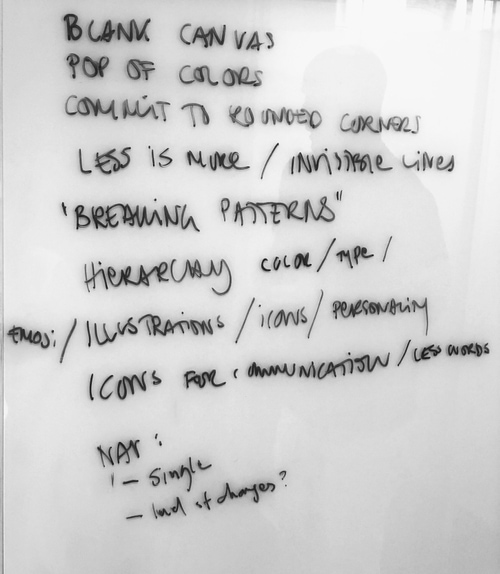 BLANK CANVAS
POP OF COLORS
COMMIT TO ROUNDED CORNERS
LESS IS MORE / INVISIBLE LINES
"BREAKING PATTERNS"
HIERARCHAY COLOR / TYPE /
EMOJI / ILLUSTRATIONS / ICONS / PERSONALITY
ICONS FOR COMMUNICATION / LESS WORDS
NAV:
- Single
- changes?